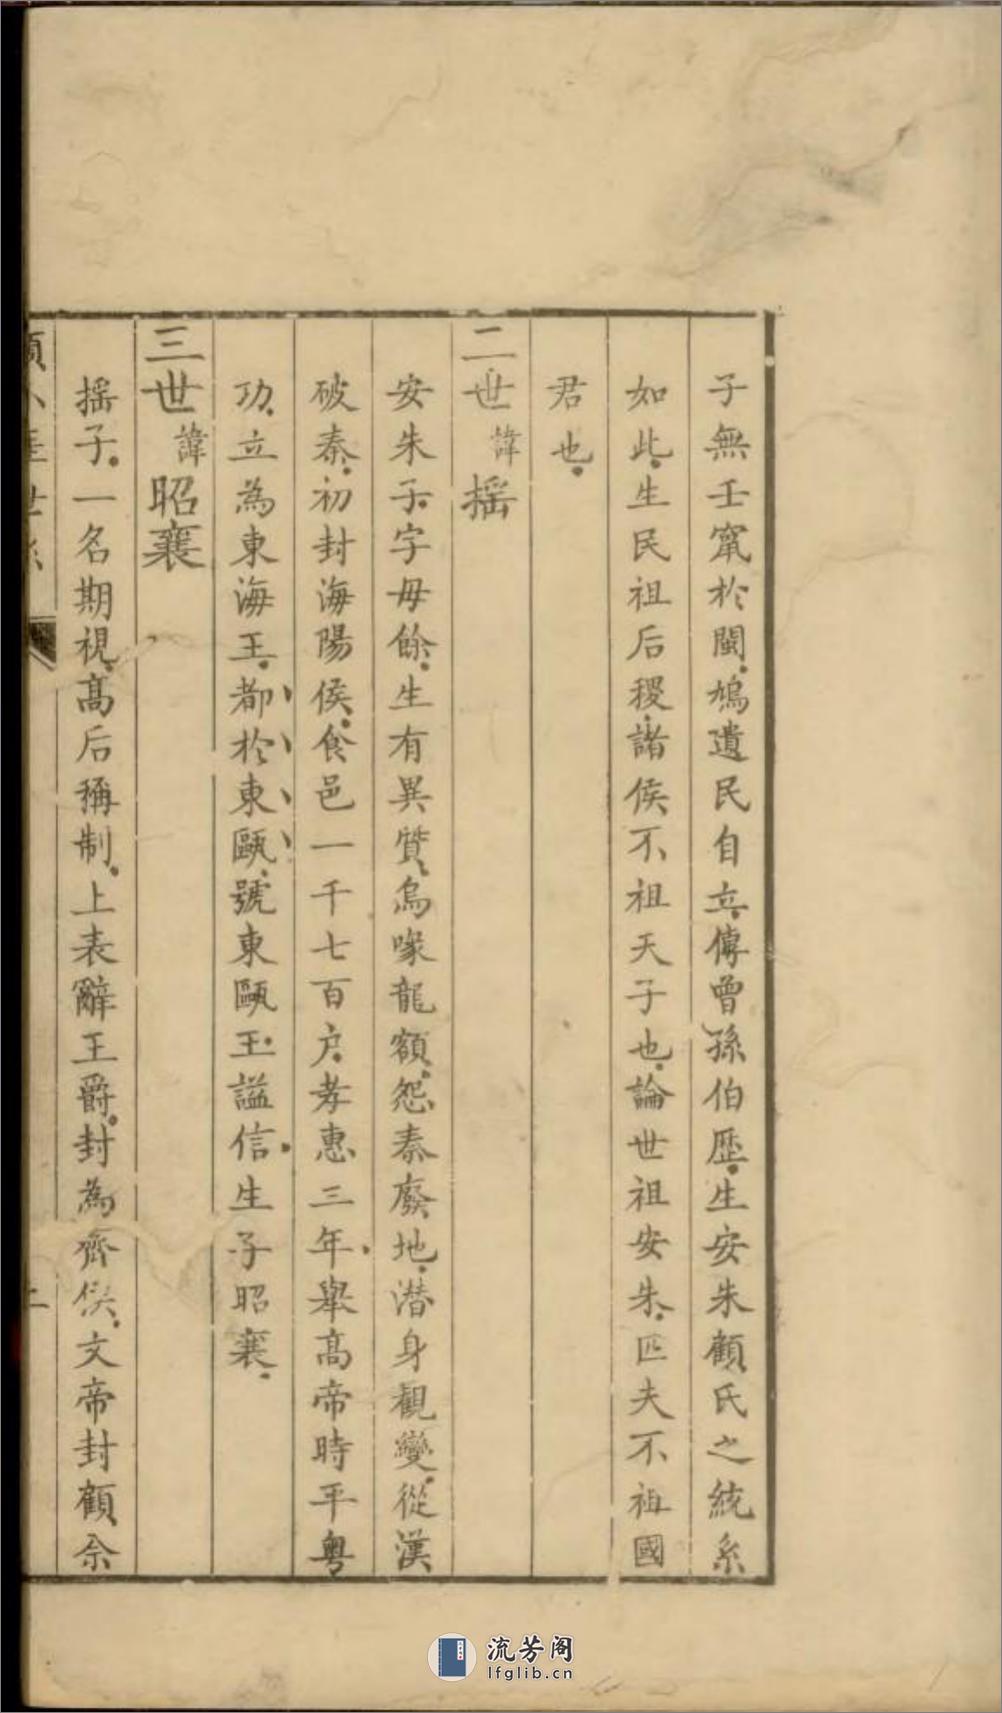 子無壬竄於閩鳩遺民自立傳曾孫伯歷生安朱顧氏之統系
如此生民祖后稷諸侯不祖天子也論世祖安朱匹夫不祖國
君也
二世諱搖
安朱子字毋餘生有異質烏喙龍額怨秦廢地潜身觀變從漢
破秦初封海陽侯食邑一千七百户孝惠三年舉高帝時平粵
功立為東海王都於東甌號東甌王謚信生子昭襄
三世諱昭襄
搖子一名期視高后稱制上表辭王爵封為齊侯文帝封顧余
流芳阁
lfglib.cn